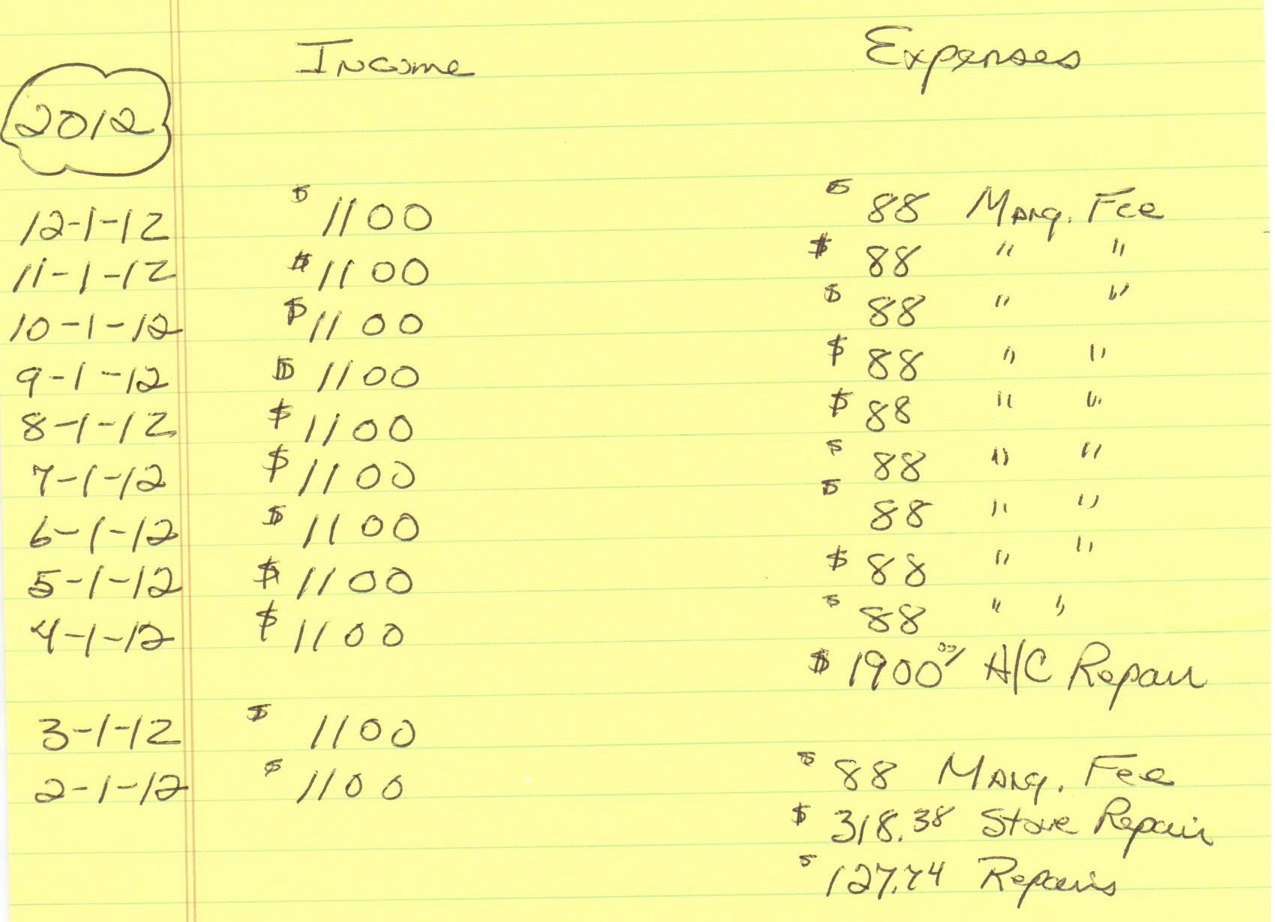 Income Expenses
2012
12-1-12 $1100 $88 Mang. Fee
11-1-12 $1100 $88 " "
10-1-12 $1100 $88 " "
9-1-12 $1100 $88 " "
8-1-12 $1100 $88 " "
7-1-12 $1100 $88 " "
6-1-12 $1100 $88 " "
5-1-12 $1100 $88 " "
4-1-12 $1100 $88 " "
$1900 00/ A/C Repair
3-1-12 $1100
2-1-12 $1100 $88 Mang. Fee
$318.38 Stove Repair
$127.74 Repairs